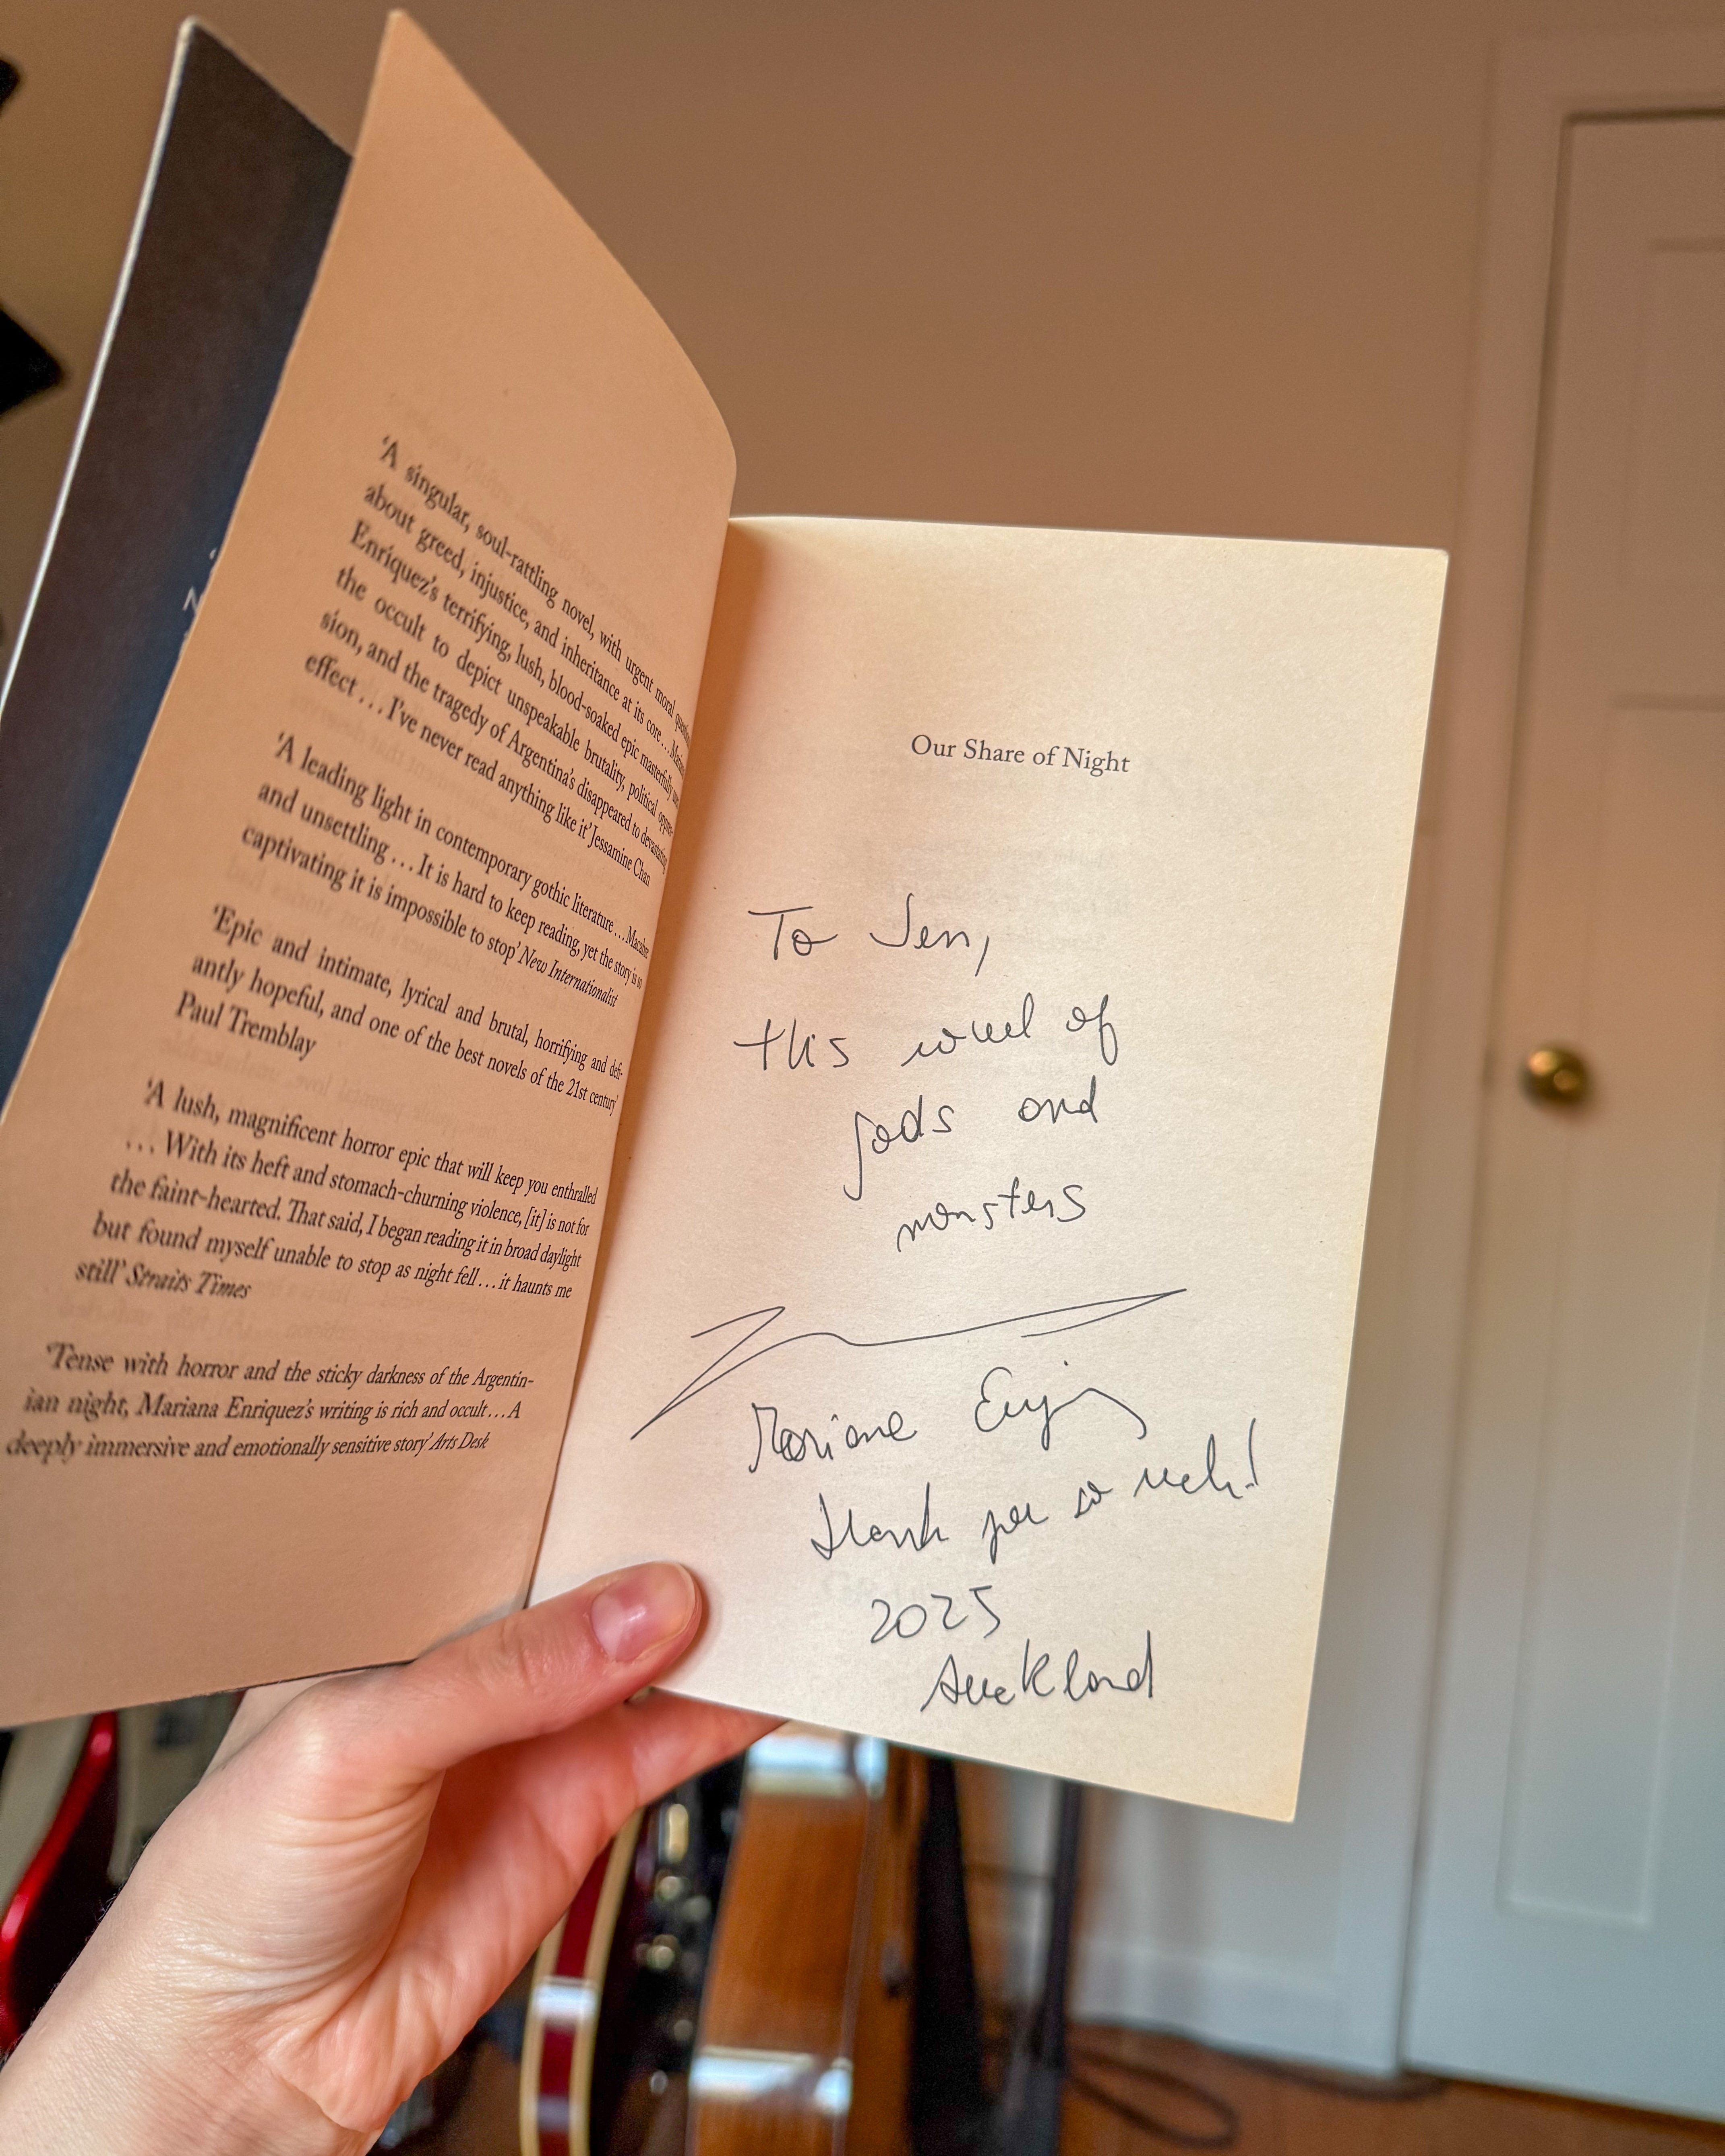 'A singular, soul-rattling novel, with urgent moral
about greed, injustice, and inheritance at its core...
Enriquez's terrifying, lush, blood-soaked epic masterfully
the occult to depict unspeakable brutality, political oppres-
sion, and the tragedy of Argentina's disappeared to devastating
effect... I've never read anything like it' Jessamine Chan
'A leading light in contemporary gothic literature... Macabre
and unsettling... It is hard to keep reading, yet the story is so
captivating it is impossible to stop' New Internationalist
'Epic and intimate, lyrical and brutal, horrifying and defi-
antly hopeful, and one of the best novels of the 21st century'
Paul Tremblay
'A lush, magnificent horror epic that will keep you enthralled
... With its heft and stomach-churning violence, [it] is not for
the faint-hearted. That said, I began reading it in broad daylight
but found myself unable to stop as night fell... it haunts me
still' Straits Times
'Tense with horror and the sticky darkness of the Argentin-
ian night, Mariana Enriquez's writing is rich and occult... A
deeply immersive and emotionally sensitive story' Arts Desk
Our Share of Night
To Jen,
this of
gods and
monsters
Mariana
Thank you so much!
2025
Auckland